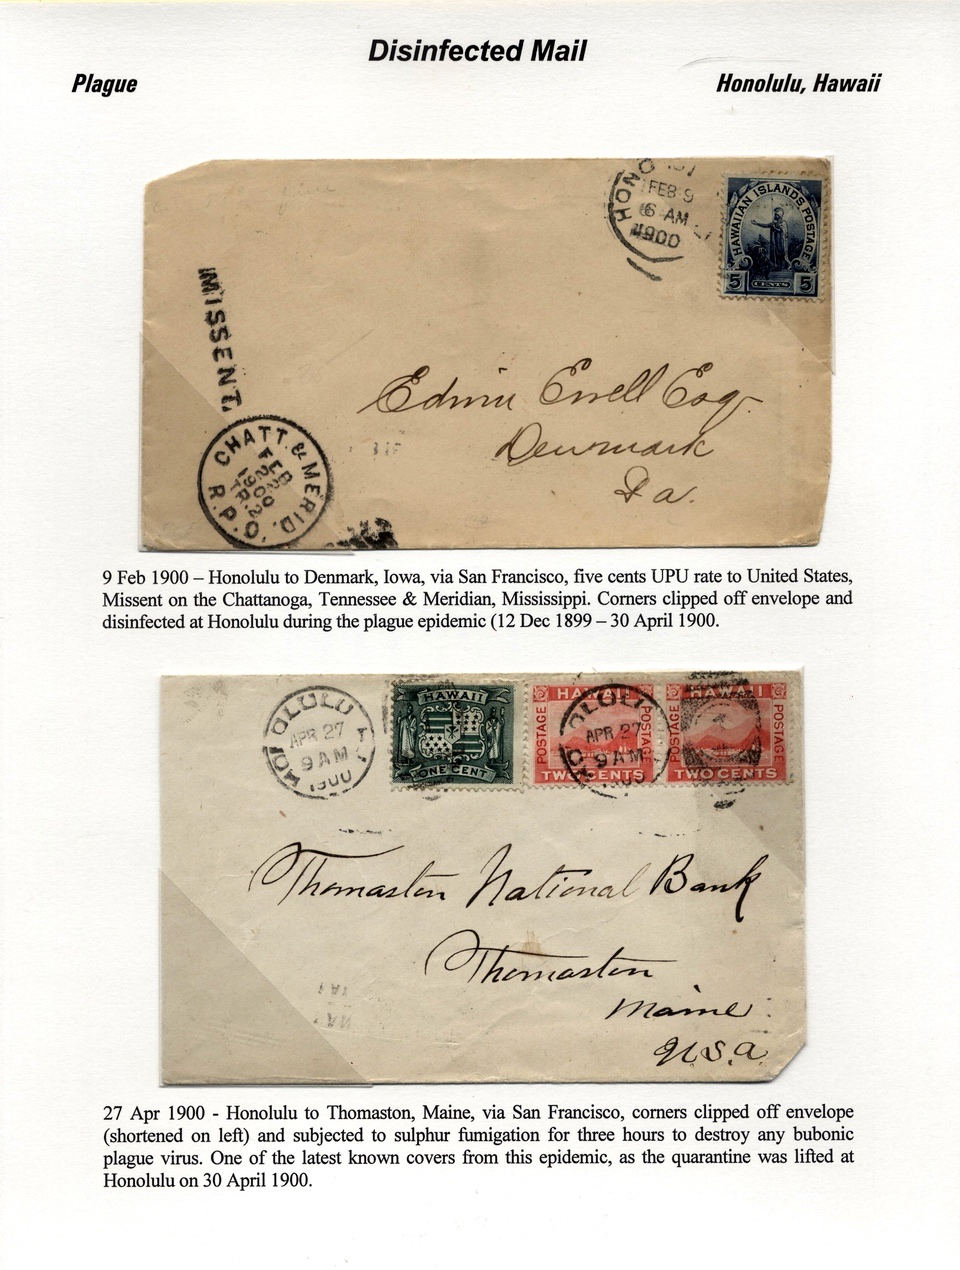 Disinfected Mail
Plague
Honolulu, Hawaii
HONO
FEB 9
6 AM
1900
HAWAIIAN ISLANDS POSTAGE
5 CENTS 5
MISSENT.
CHATT. & MERID.
FEB
20
1900
TR. 2
R.P.O.
Edwin Ewell Esq.
Denmark
Ia.
9 Feb 1900 – Honolulu to Denmark, Iowa, via San Francisco, five cents UPU rate to United States,
Missent on the Chattanoga, Tennessee & Meridian, Mississippi. Corners clipped off envelope and
disinfected at Honolulu during the plague epidemic (12 Dec 1899 – 30 April 1900.
HONOLULU
APR 27
9 AM
1900
HAWAII
ONE CENT
HAWAII
POSTAGE
POSTAGE
TWO CENTS
HONOLULU
APR 27
9 AM
HAWAII
POSTAGE
POSTAGE
TWO CENTS
Thomaston National Bank
Thomaston
Maine
U.S.a.
27 Apr 1900 - Honolulu to Thomaston, Maine, via San Francisco, corners clipped off envelope
(shortened on left) and subjected to sulphur fumigation for three hours to destroy any bubonic
plague virus. One of the latest known covers from this epidemic, as the quarantine was lifted at
Honolulu on 30 April 1900.